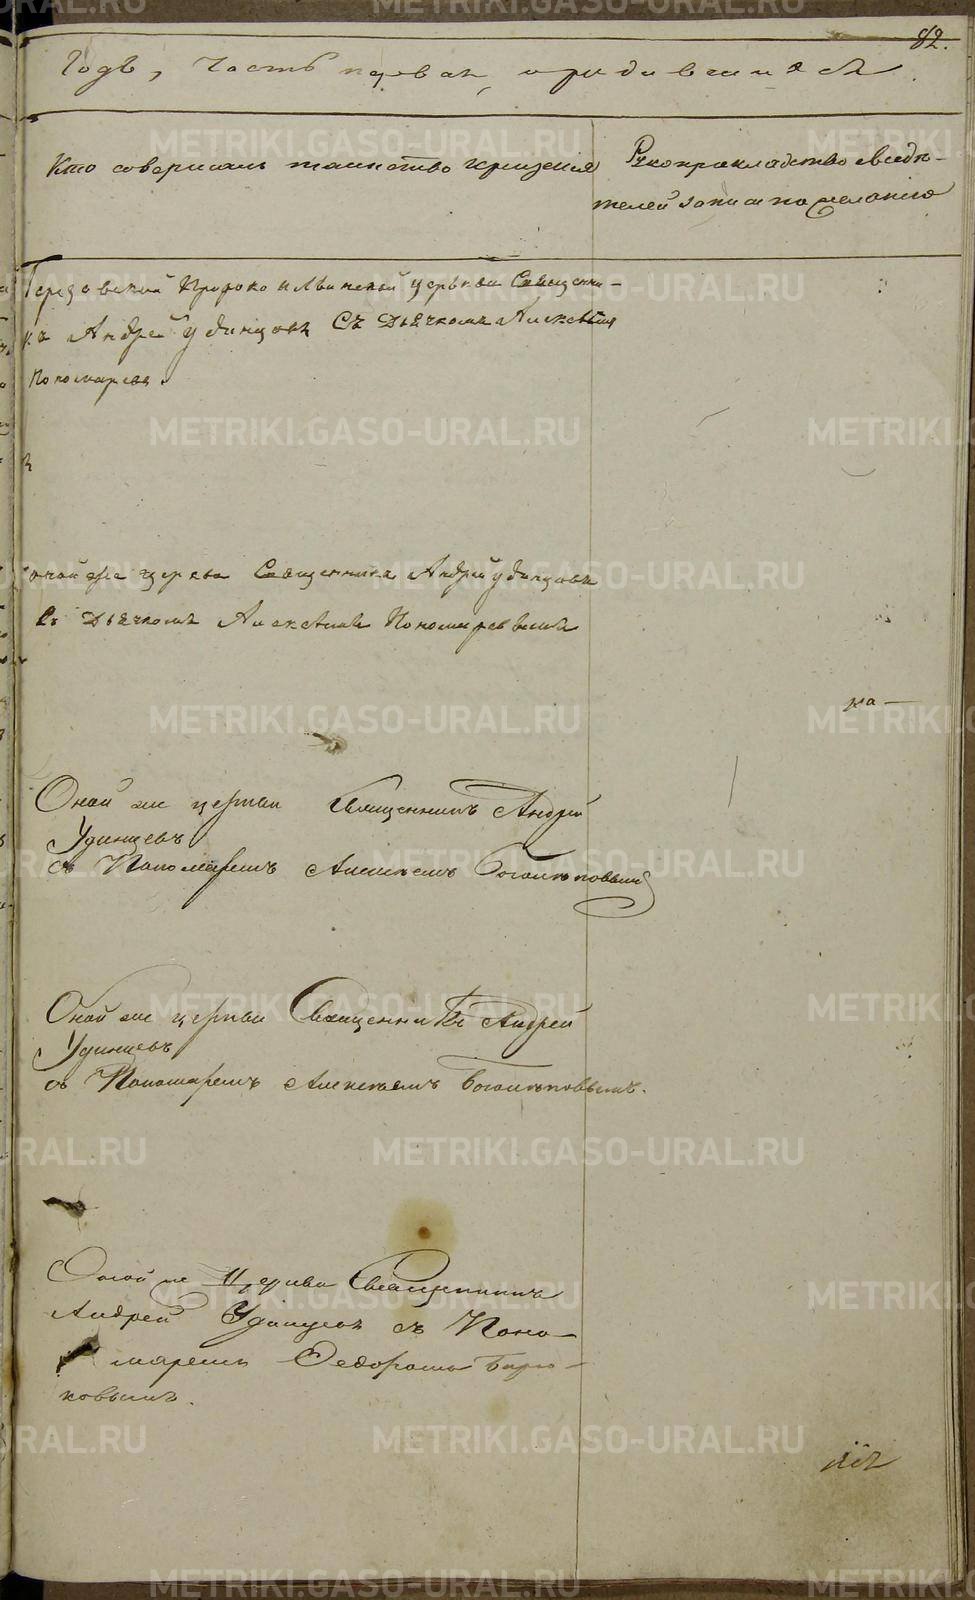 82.
Годъ, Часть первая, о родившихся.
Кто совершалъ таинство крещенія
Рукоприкладство свидѣ-
телей записи по желанію
Пророко Ильинской церькви Священни-
къ Андрей Удинцовъ Съ Дьячкомъ Алексѣемъ
Пономаревъ.
оной же церкви Священникъ Андрей Удинцовъ
Съ Дьячкомъ Алексѣемъ Пономаревымъ
ка —
Оной же церкви Священникъ Андрей
Удинцевъ
съ Пономаремъ Алексѣемъ Боголѣповымъ
Оной же церкви Священникъ Андрей
Удинцевъ
съ Пономаремъ Алексѣемъ Боголѣповымъ.
Оной же Церкви Священникъ
Андрей Удинцевъ съ Поно-
маремъ Федоромъ Бирю-
ковымъ.
METRIKI.GASO-URAL.RU